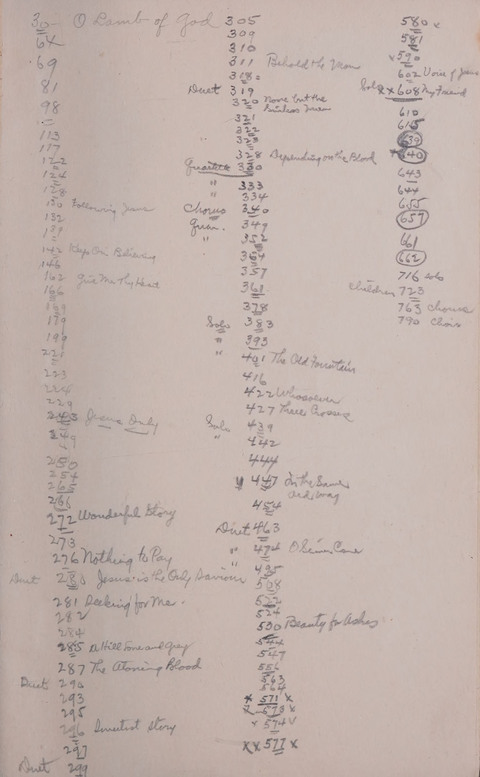 30 O Lamb of God
64
69
81
98
113
117
122
124
128
130 Following Jesus
132
139
142 Keep On Believing
146
162 Give Me Thy Heart
166
169
179
199
221
223
224
229
243 Jesus Only
249
250
254
265
266
272 Wonderful Story
273
276 Nothing to Pay
Duet 280 Jesus is the Only Saviour
281 Seeking for Me.
282
284
285 A Hill Lone and Grey
287 The Atoning Blood
Duet 290
293
295
296 Sweetest Story
297
Duet 299
305
309
310
311 Behold the Man
318
Duet 319
320 None but the
321
322
323
328 Depending on the Blood
Quartette 330
" 333
" 334
Chorus 340
Quar. 349
" 352
354
357
361
378
Solo 383
" 393
" 401 The Old Fountain
416
422 Whosoever
427 Three Crosses
Solo 439
" 442
444
" 447 In the Same
Old Way
454
Duet 463
" 474
495
508
522
524
530 Beauty for Ashes
544
547
556
563
564
x 571 x
x 573 x
x 574 x
xx 577 x
580 x
581
x 590
602 Voice of Jesus
Solo xx 608 My Friend
610
615
639
x 640
643
644
655
657
661
662
716 solo
Children 723
763 Chorus
790 Choir